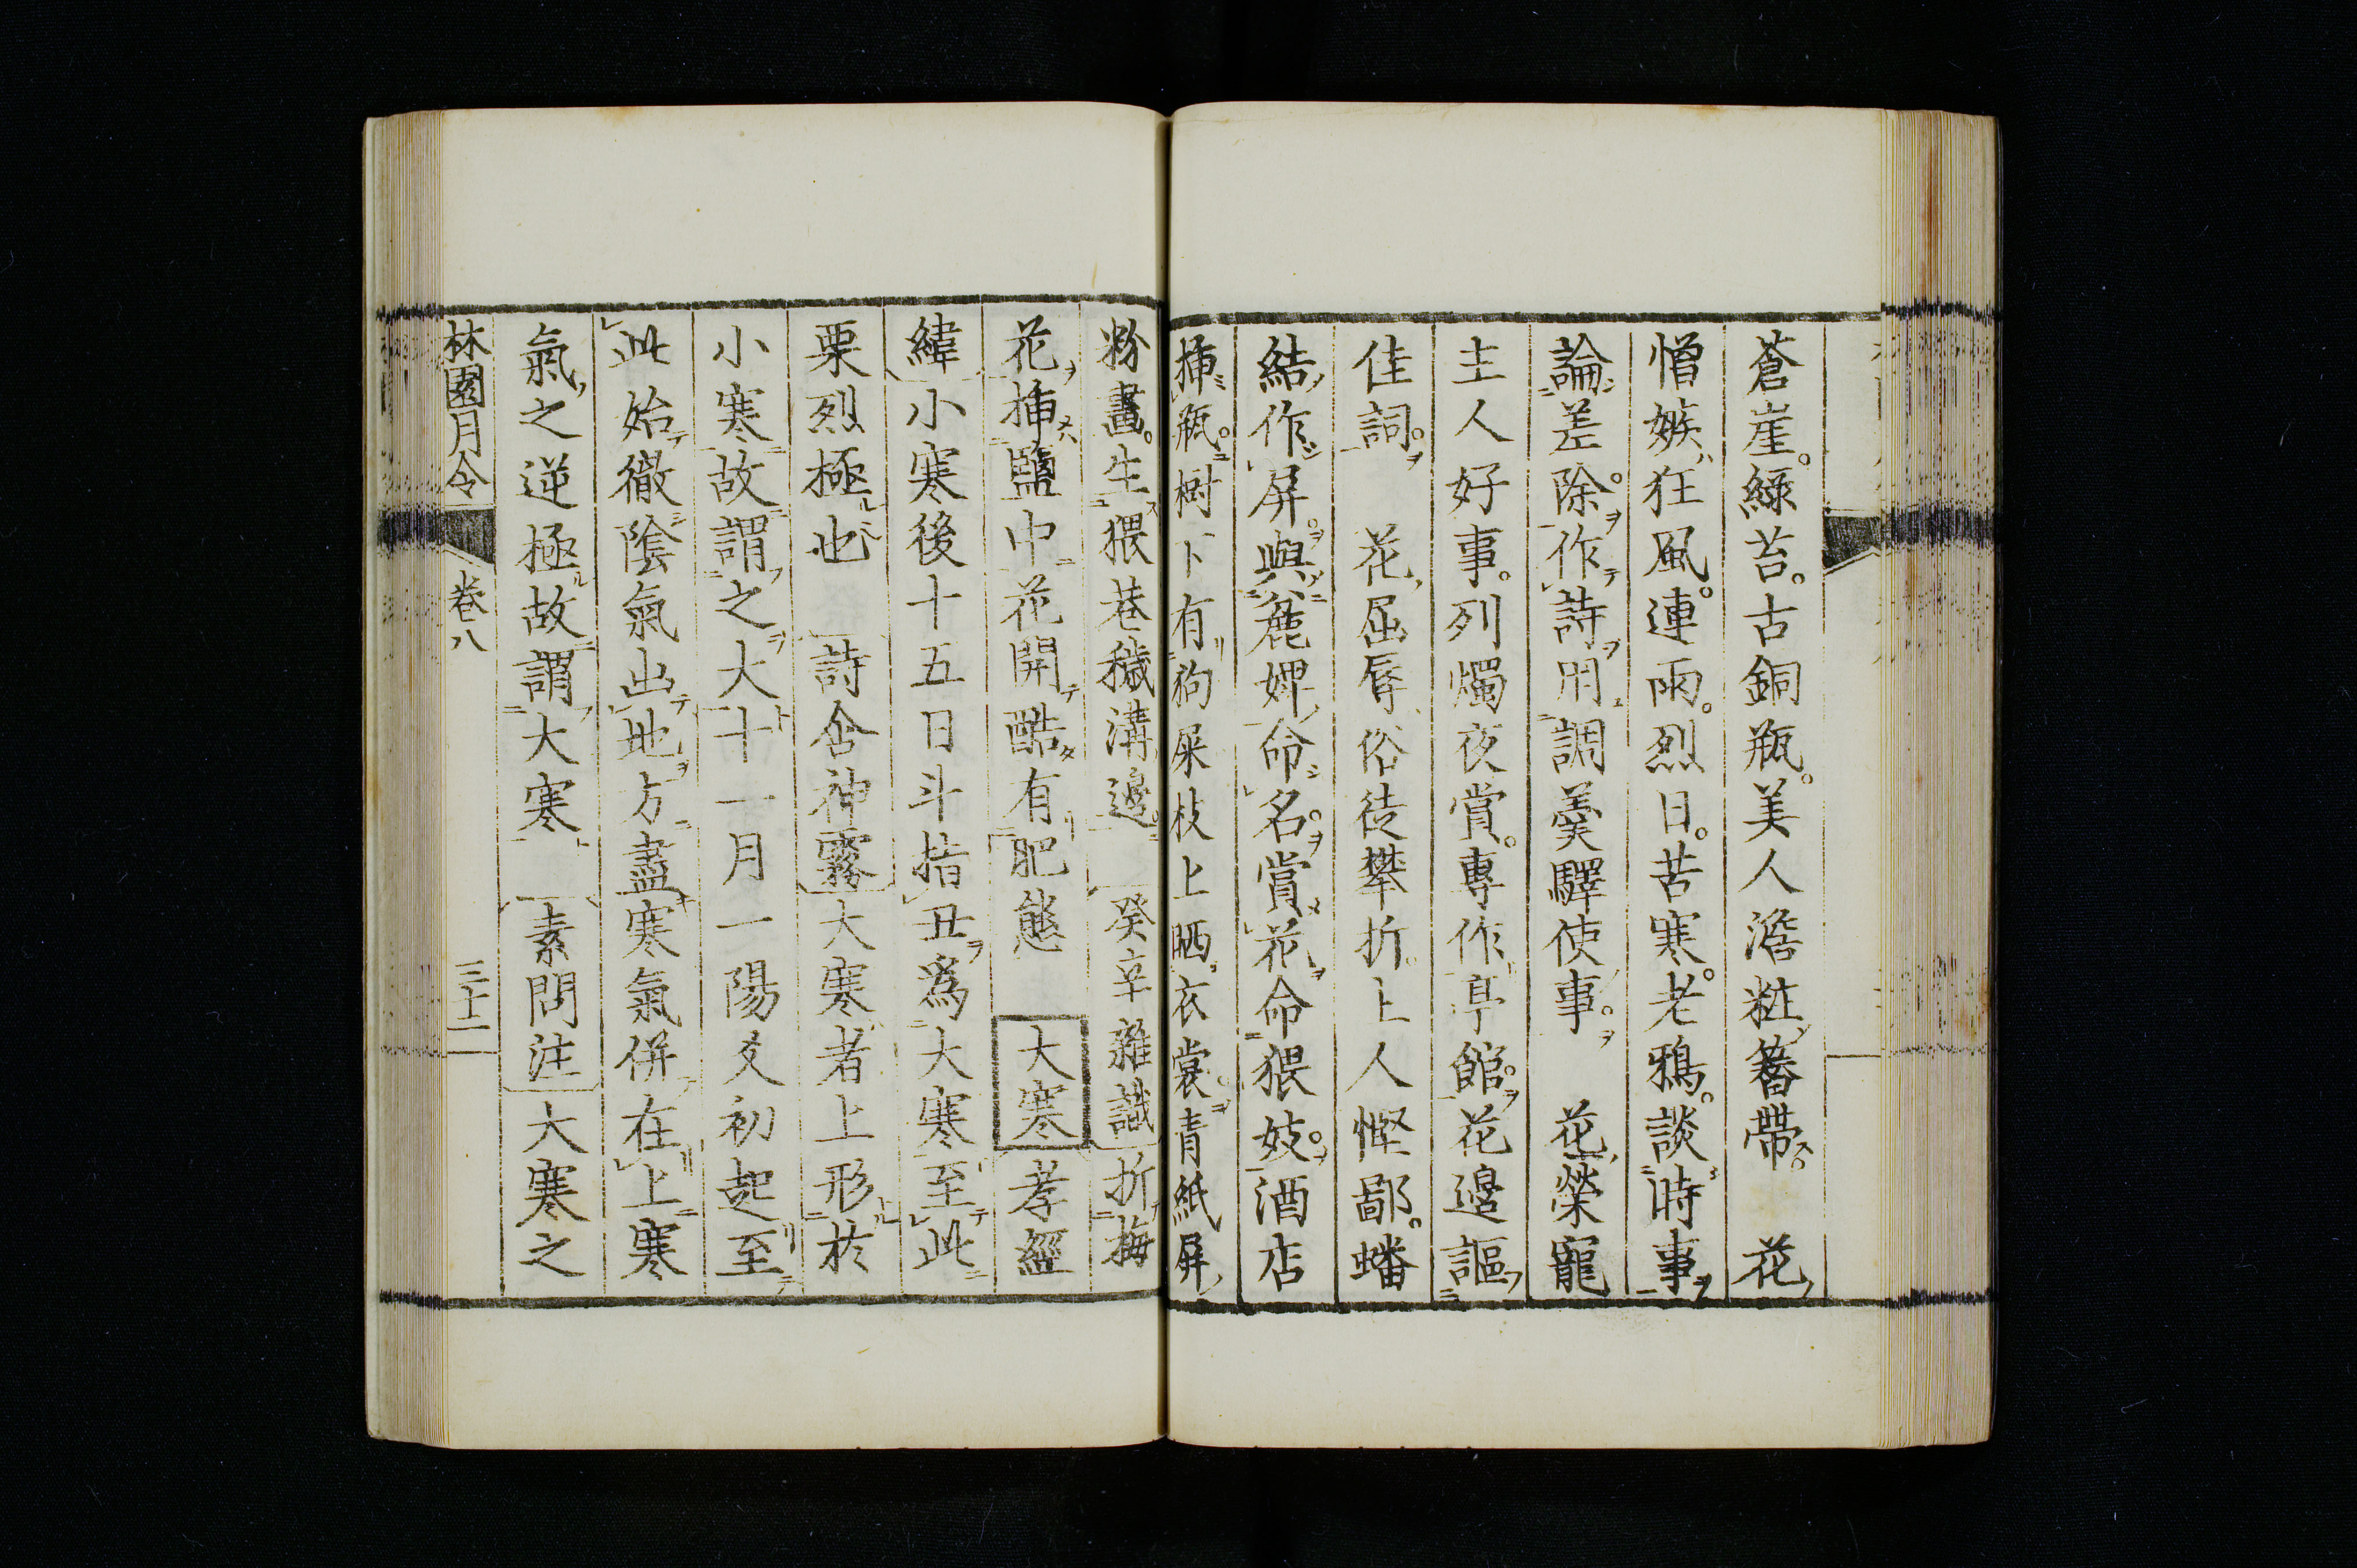 蒼崖。綠苔。古銅瓶。美人澹粧簪帶。　花
憎嫉狂風。連雨。烈日。苦寒。老鴉。談時事
論差除。作詩用調羹驛使事。　花榮寵
主人好事。列燭夜賞。專作亭館。花邊謳
佳詞。　花屈辱俗徒攀折。上人慳鄙。蟠
結作屏。與麁婢命名。賞花命猥妓。酒店
挿瓶。樹下有狗屎枝上晒衣裳。青紙屏
粉畫。生猥巷穢溝邊。　癸辛雜識折梅
花挿鹽中花開酷有肥態　大寒孝經
緯小寒後十五日斗指丑爲大寒至此
栗烈極也　詩含神霧大寒者上形於
小寒故謂之大十一月一陽爻初起至
此始徹陰氣出地方盡寒氣併在上寒
氣之逆極故謂大寒　素問注大寒之
林園月令　卷八　三十一